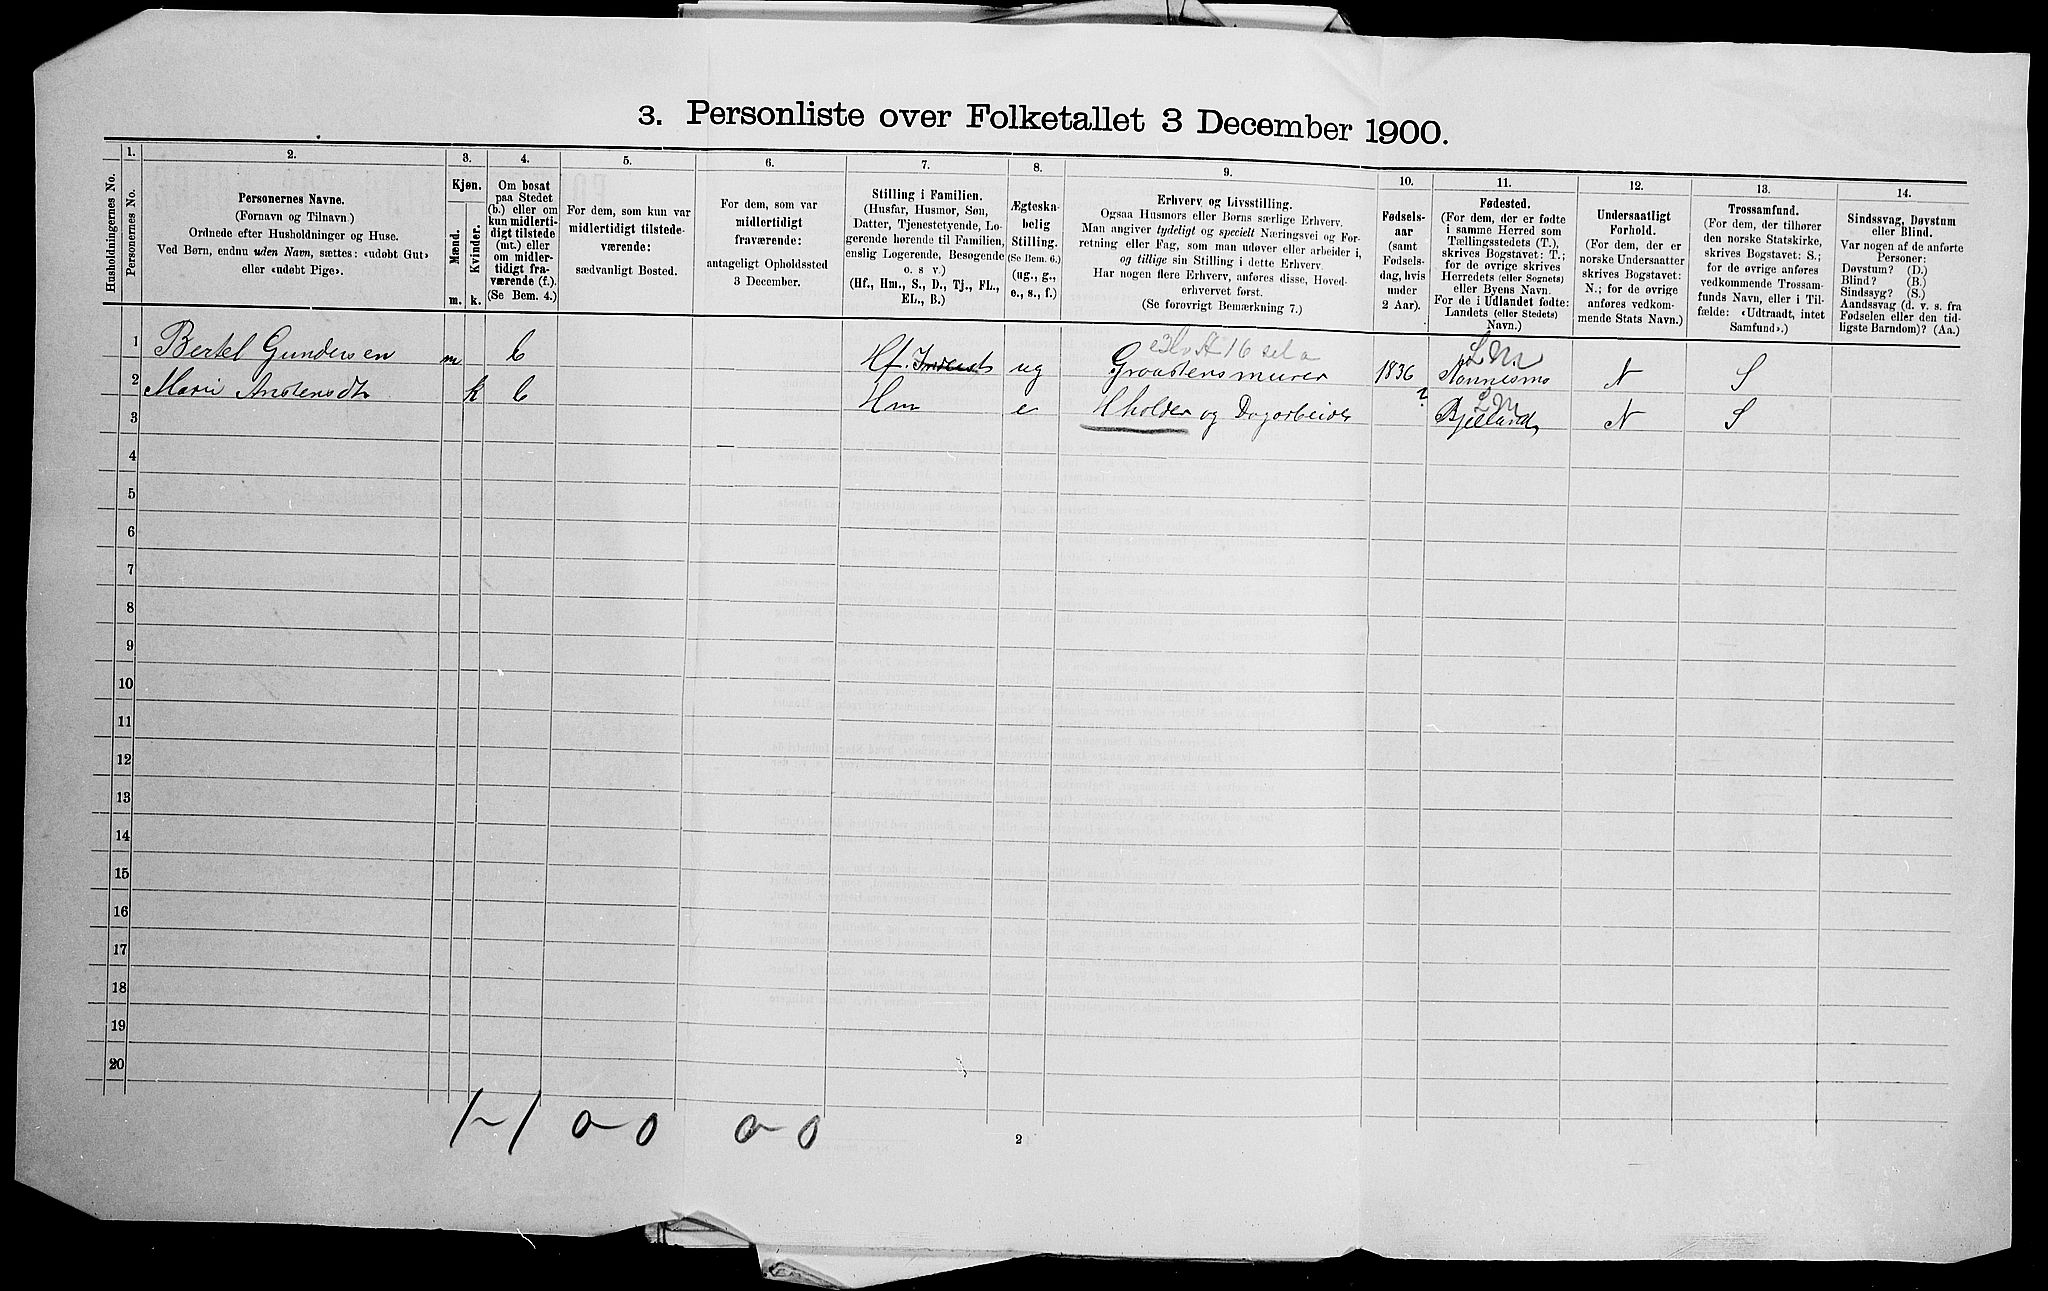 3. Personliste over Folketallet 3 December 1900.
1. 2. 3. 4. 5. 6. 7. 8. 9. 10. 11. 12. 13. 14.
Husholdningernes No.
Personernes No.
Personernes Navne.
(Fornavn og Tilnavn.)
Ordnede efter Husholdninger og Huse.
Ved Børn, endnu uden Navn, sættes: «udøbt Gut»
eller «udøbt Pige».
Kjøn.
Mænd.
Kvinder.
m. k.
Om bosat
paa Stedet
(b.) eller om
kun midlerti-
digt tilstede
(mt.) eller
om midler-
tidigt fra-
værende (f.).
(Se Bem. 4.)
For dem, som kun var
midlertidigt tilstede-
værende:
sædvanligt Bosted.
For dem, som var
midlertidigt
fraværende:
antageligt Opholdssted
3 December.
Stilling i Familien.
(Husfar, Husmor, Søn,
Datter, Tjenestetyende, Lo-
gerende hørende til Familien,
enslig Logerende, Besøgende
o. s v.)
(Hf., Hm., S., D., Tj., FL.,
EL., B.)
Ægteska-
belig
Stilling.
(Se Bem. 6.)
(ug., g.,
e., s., f.)
Erhverv og Livsstilling.
Ogsaa Husmors eller Børns særlige Erhverv.
Man angiver tydeligt og specielt Næringsvei og For-
retning eller Fag, som man udøver eller arbeider i,
og tillige sin Stilling i dette Erhverv.
Har nogen flere Erhverv, anføres disse, Hoved-
erhvervet først.
(Se forøvrigt Bemærkning 7.)
Fødsels-
aar
(samt
Fødsels-
dag, hvis
under
2 Aar).
Fødested.
(For dem, der er fødte
i samme Herred som
Tællingsstedets (T.),
skrives Bogstavet: T.;
for de øvrige skrives
Herredets (eller Sognets)
eller Byens Navn.
For de i Udlandet fødte:
Landets (eller Stedets)
Navn.)
Undersaatligt
Forhold.
(For dem, der er
norske Undersaatter
skrives Bogstavet:
N.; for de øvrige
anføres vedkom-
mende Stats Navn.)
Trossamfund.
(For dem, der tilhører
den norske Statskirke,
skrives Bogstavet: S.;
for de øvrige anføres
vedkommende Trossam-
funds Navn, eller i Til-
fælde: «Udtraadt, intet
Samfund».)
Sindssvag, Døvstum
eller Blind.
Var nogen af de anførte
Personer:
Døvstum? (D.)
Blind? (B.)
Sindssyg? (S.)
Aandssvag (d. v. s. fra
Fødselen eller den tid-
ligste Barndom)? (Aa.)
16 L M
1 Bertel Gundersen m b Hf. ug Graastensmurer 1836 N S
L M
2 Marie k b Hm e Hholder og Dagarbeide ? Bjelland N S
3
4
5
6
7
8
9
10
11
12
13
14
15
16
17
18
19
20
1-1 0-0 0-0
2